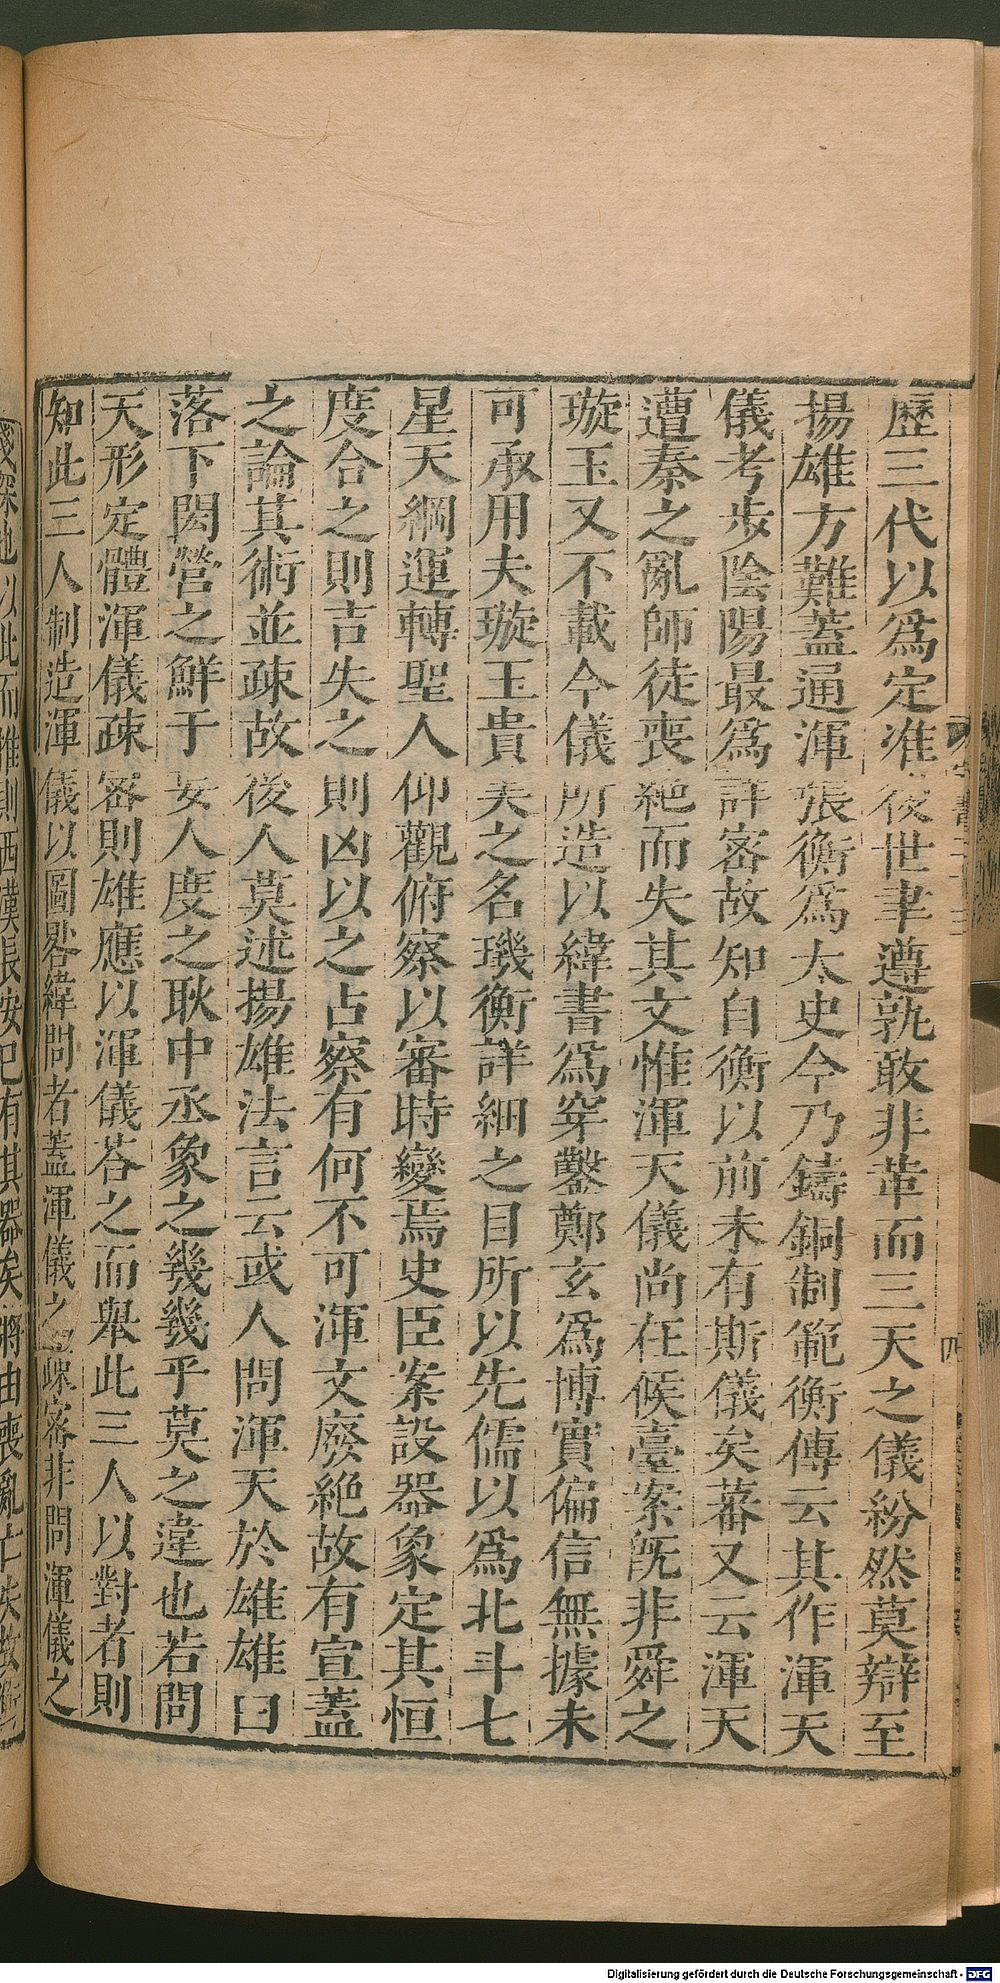 歷三代以爲定准後世聿遵孰敢非革而三天之儀紛然莫辯至
揚雄方難蓋通渾張衡爲太史令乃鑄銅制範衡傳云其作渾天
儀考步陰陽最爲詳密故知自衡以前未有斯儀矣蕃又云渾天
遭秦之亂師徒喪絶而失其文惟渾天儀尚在候臺案旣非舜之
璇玉又不載今儀所造以緯書爲穿鑿鄭玄爲博實偏信無據未
可承用夫璇玉貴美之名璣衡詳細之目所以先儒以爲北斗七
星天綱運轉聖人仰觀俯察以審時變焉史臣案設器象定其恒
度合之則吉失之則凶以之占察有何不可渾文廢絶故有宣蓋
之論其術並疎故後人莫述揚雄法言云或人問渾天於雄雄曰
落下閎營之鮮于妄人度之耿中丞象之幾幾乎莫之違也若問
天形定體渾儀疎密則雄應以渾儀荅之而舉此三人以對者則
知此三人制造渾儀以圖晷緯問者蓋渾儀之疎密非問渾儀之
淺深也以此而推則西漢長安已有其器矣將由喪亂亡失故衡
四
Digitalisierung gefördert durch die Deutsche Forschungsgemeinschaft - DFG